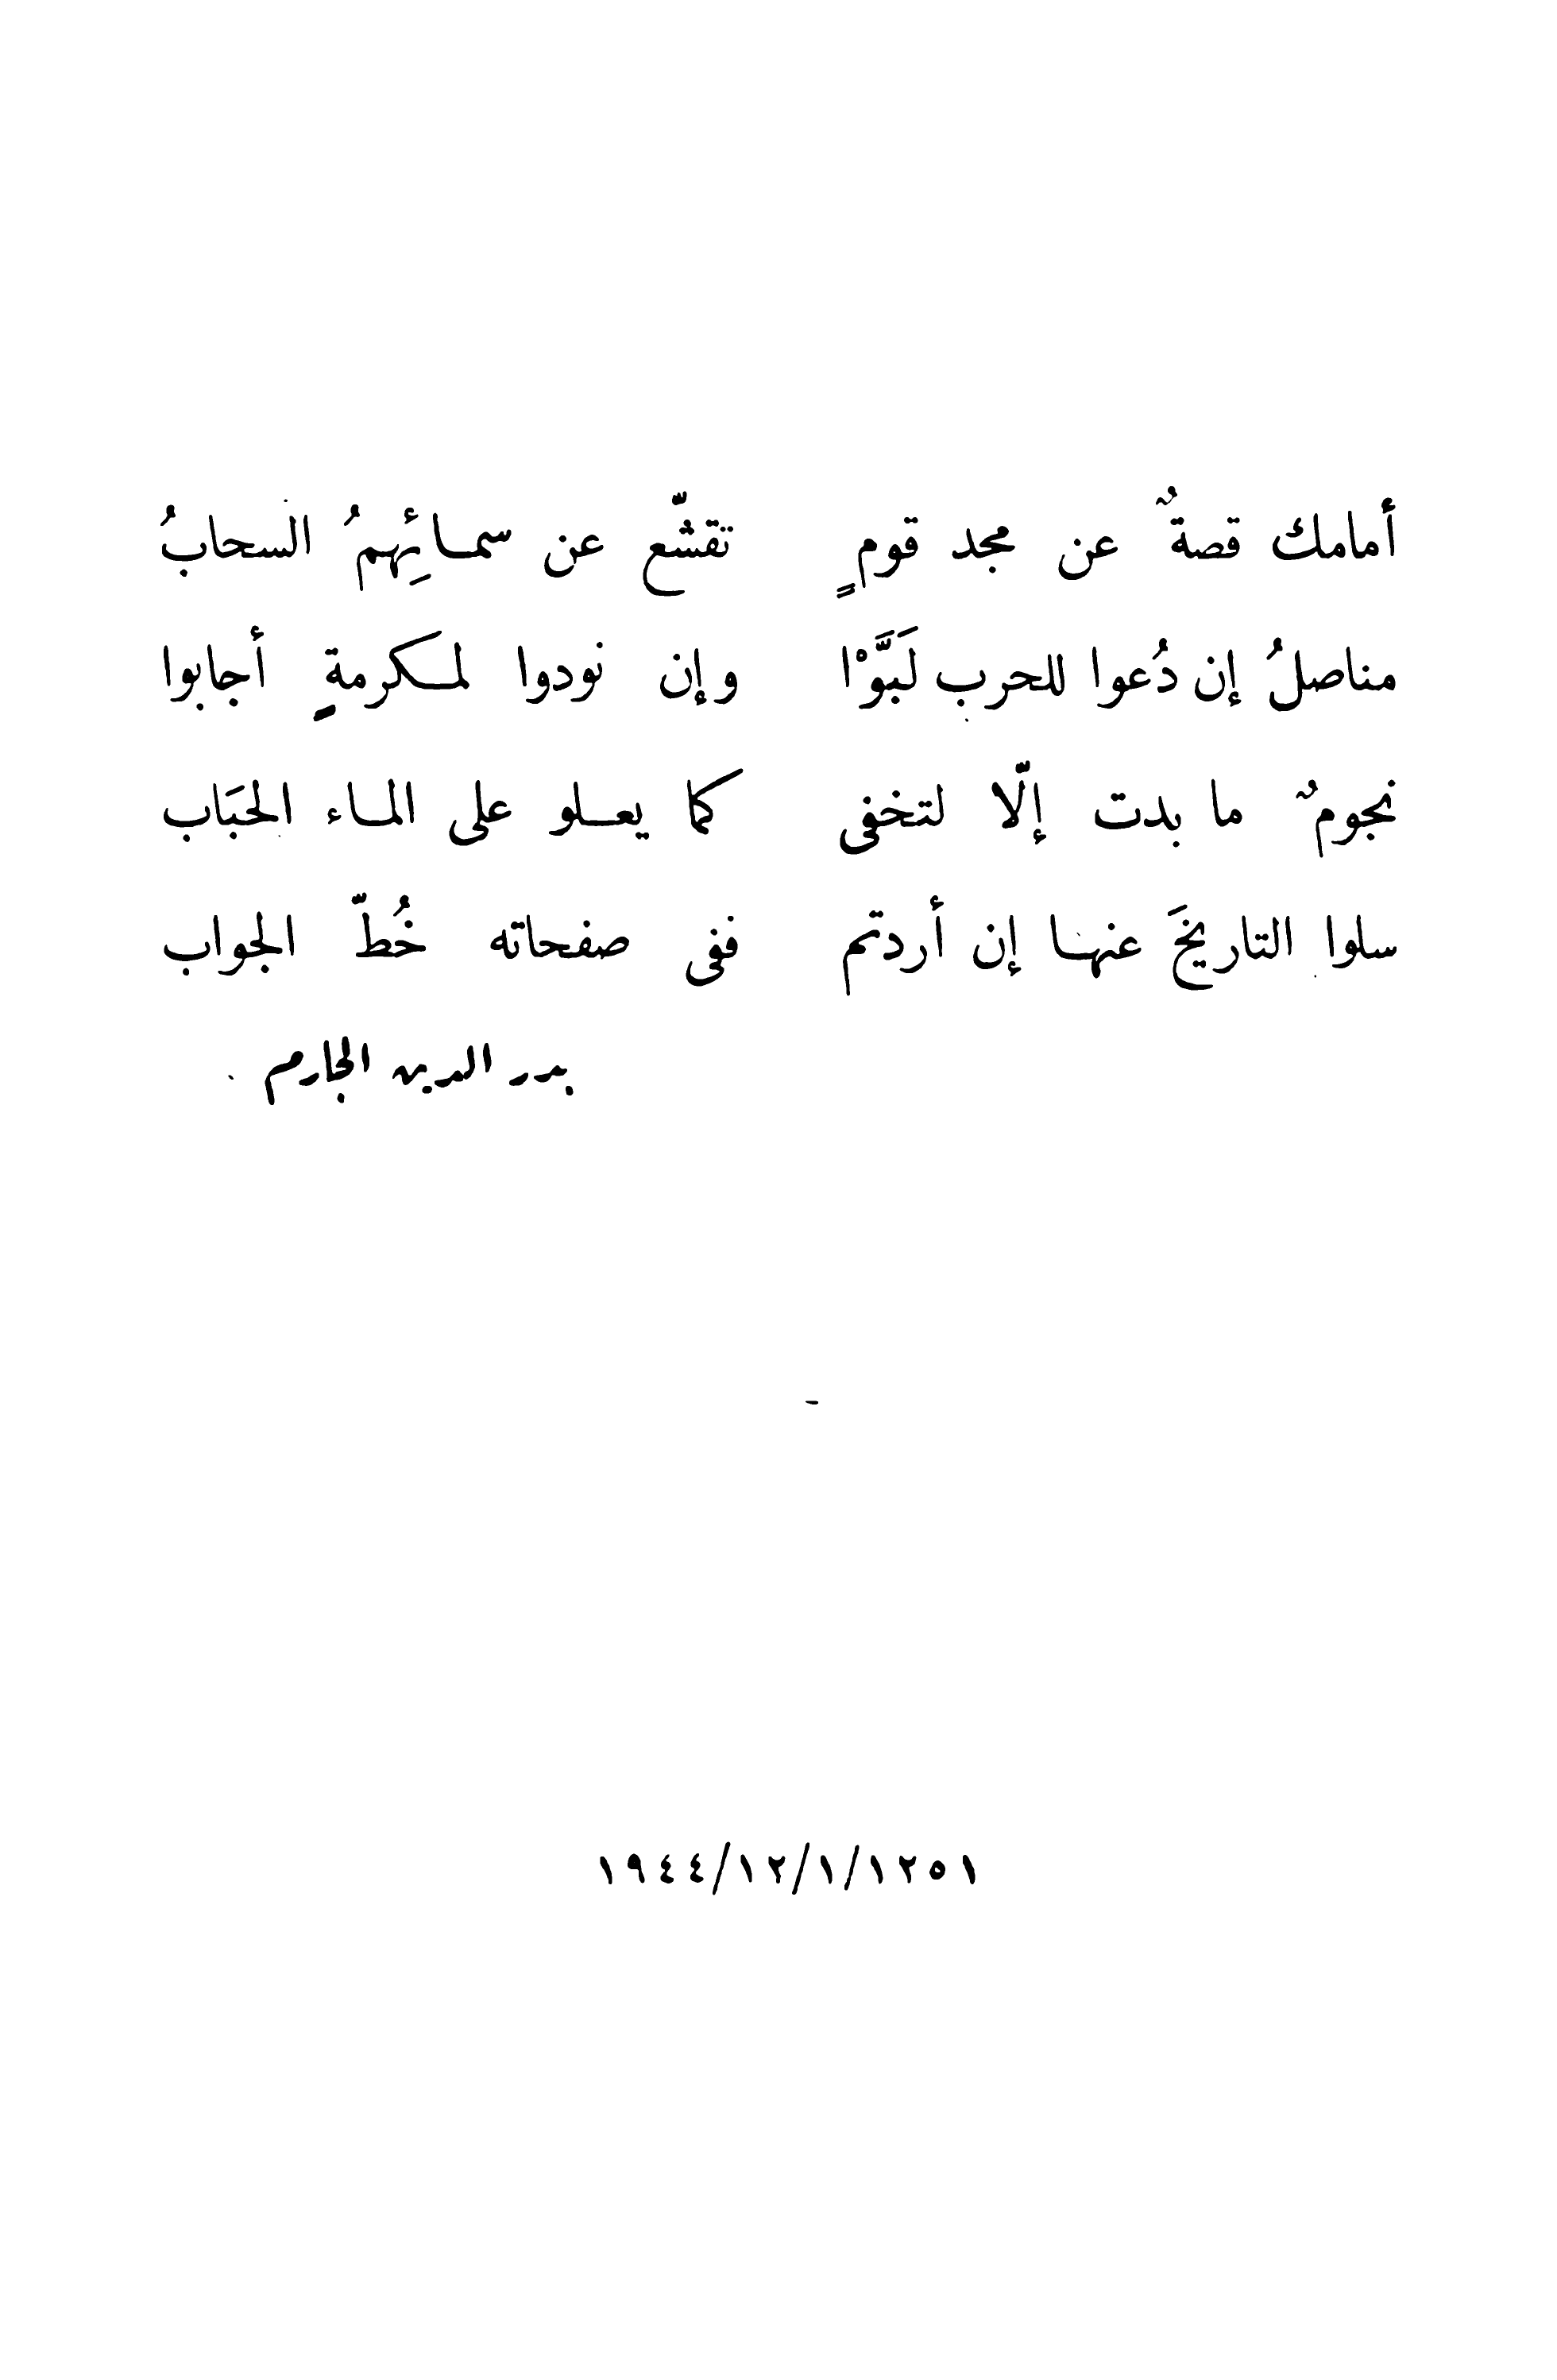 أمامك قصةٌ عن مجد قومٍ تقشّع عن سمائِهمُ السحابُ
مناصلُ إن دُعوا للحرب لَبَّوْا وإن نودوا لمكرمةٍ أجابوا
نجومٌ ما بدت إلّا لتخفى كما يعلو على الماء الحبَاب
سلوا التاريخَ عنها إن أردتم ففى صفحاته خُطّ الجواب
بدر الدين الجارم
١٩٤٤/١٢/١/١٢٥١